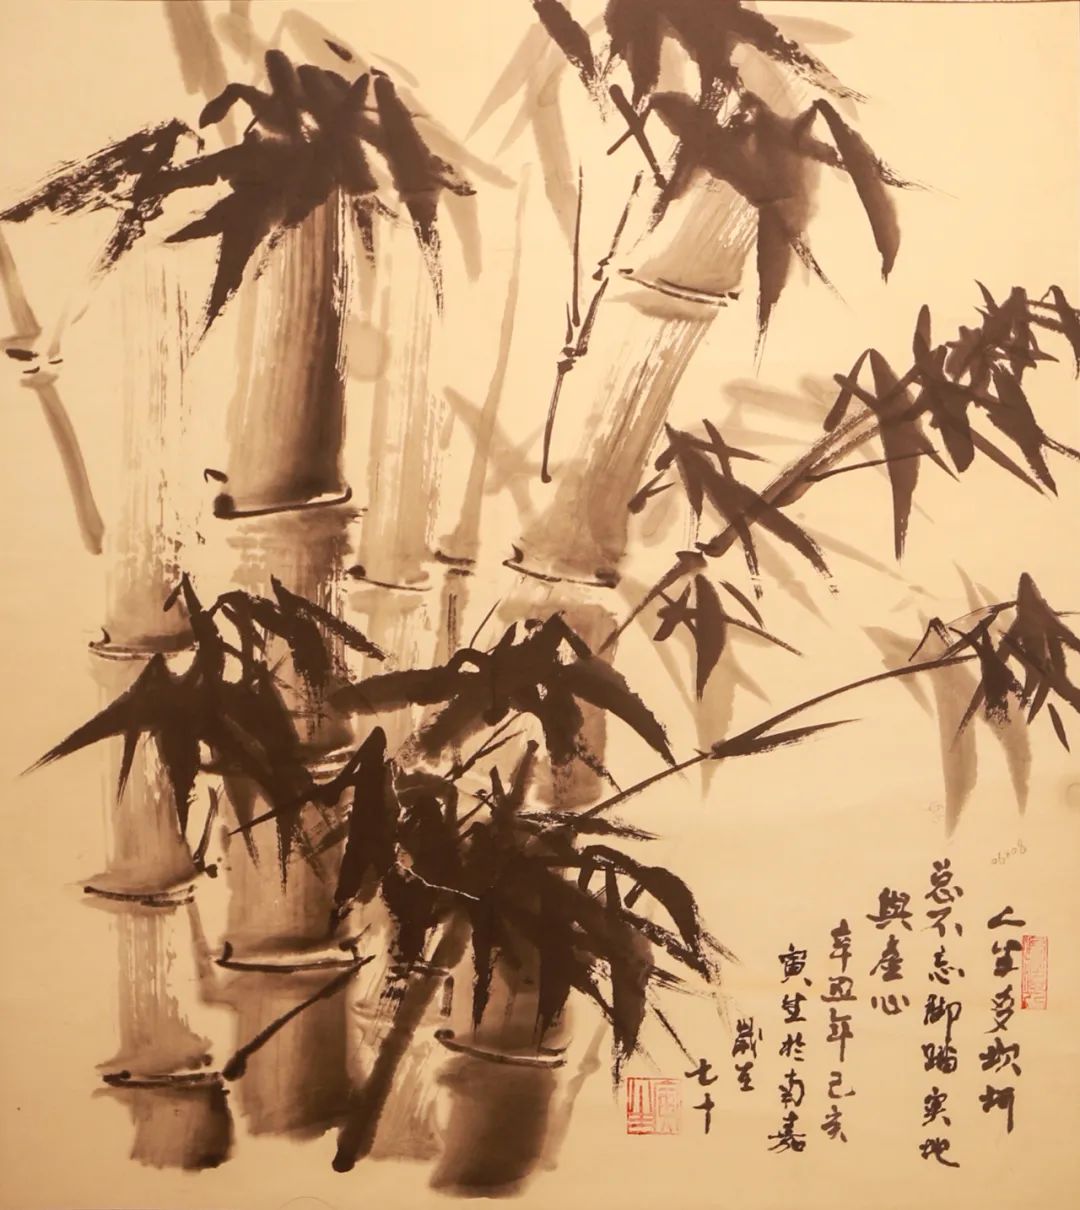 人生多坎坷
总不忘脚踏实地
與虛心
辛丑年己亥
寅生於南嘉
歲
七十